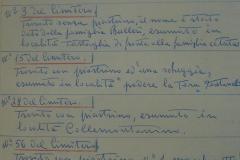 N° 3 del Cimitero.
Trovato senza piastrino, il nome è stato
dato dalla famiglia Butler, esumato in
località di fronte alla famiglia
N° 15 del Cimitero.
Trovato con piastrino ed una scheggia,
esumato in località podere la Torre
N° 28 del Cimitero.
Trovato con piastrino, esumato in
località Collemontanino.
N° 56 del Cimitero
Trovato con piastrino N°